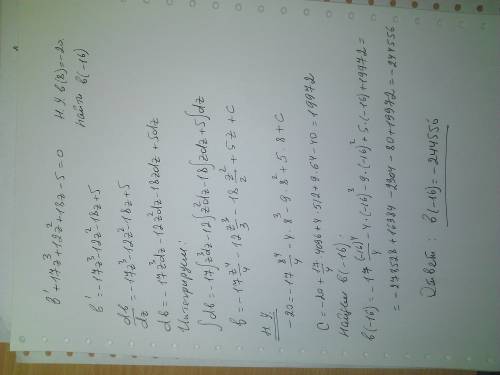 b' + 17z³ + 12z² + 18z - 5 = 0   н.у. b(8) = -20
найти b(-16)
b' = -17z³ - 12z² - 18z + 5
db/dz = -17z³ - 12z² - 18z + 5
db = -17z³dz - 12z²dz - 18zdz + 5dz
Интегрируем:
∫db = -17∫z³dz - 12∫z²dz - 18∫zdz + 5∫dz
b = -17 z⁴/4 - 12 z³/3 - 18 z²/2 + 5z + C
н.у.
-20 = -17 8⁴/4 - 4·8³ - 9·8² + 5·8 + C
C = -20 + 17/4 · 4096 + 4·512 + 9·64 - 40 = 19972
Найдем b(-16):
b(-16) = -17 (-16)⁴/4 - 4·(-16)³ - 9·(-16)² + 5·(-16) + 19972 =
= -278528 + 16384 - 2304 - 80 + 19972 = -244556
Ответ: b(-16) = -244556